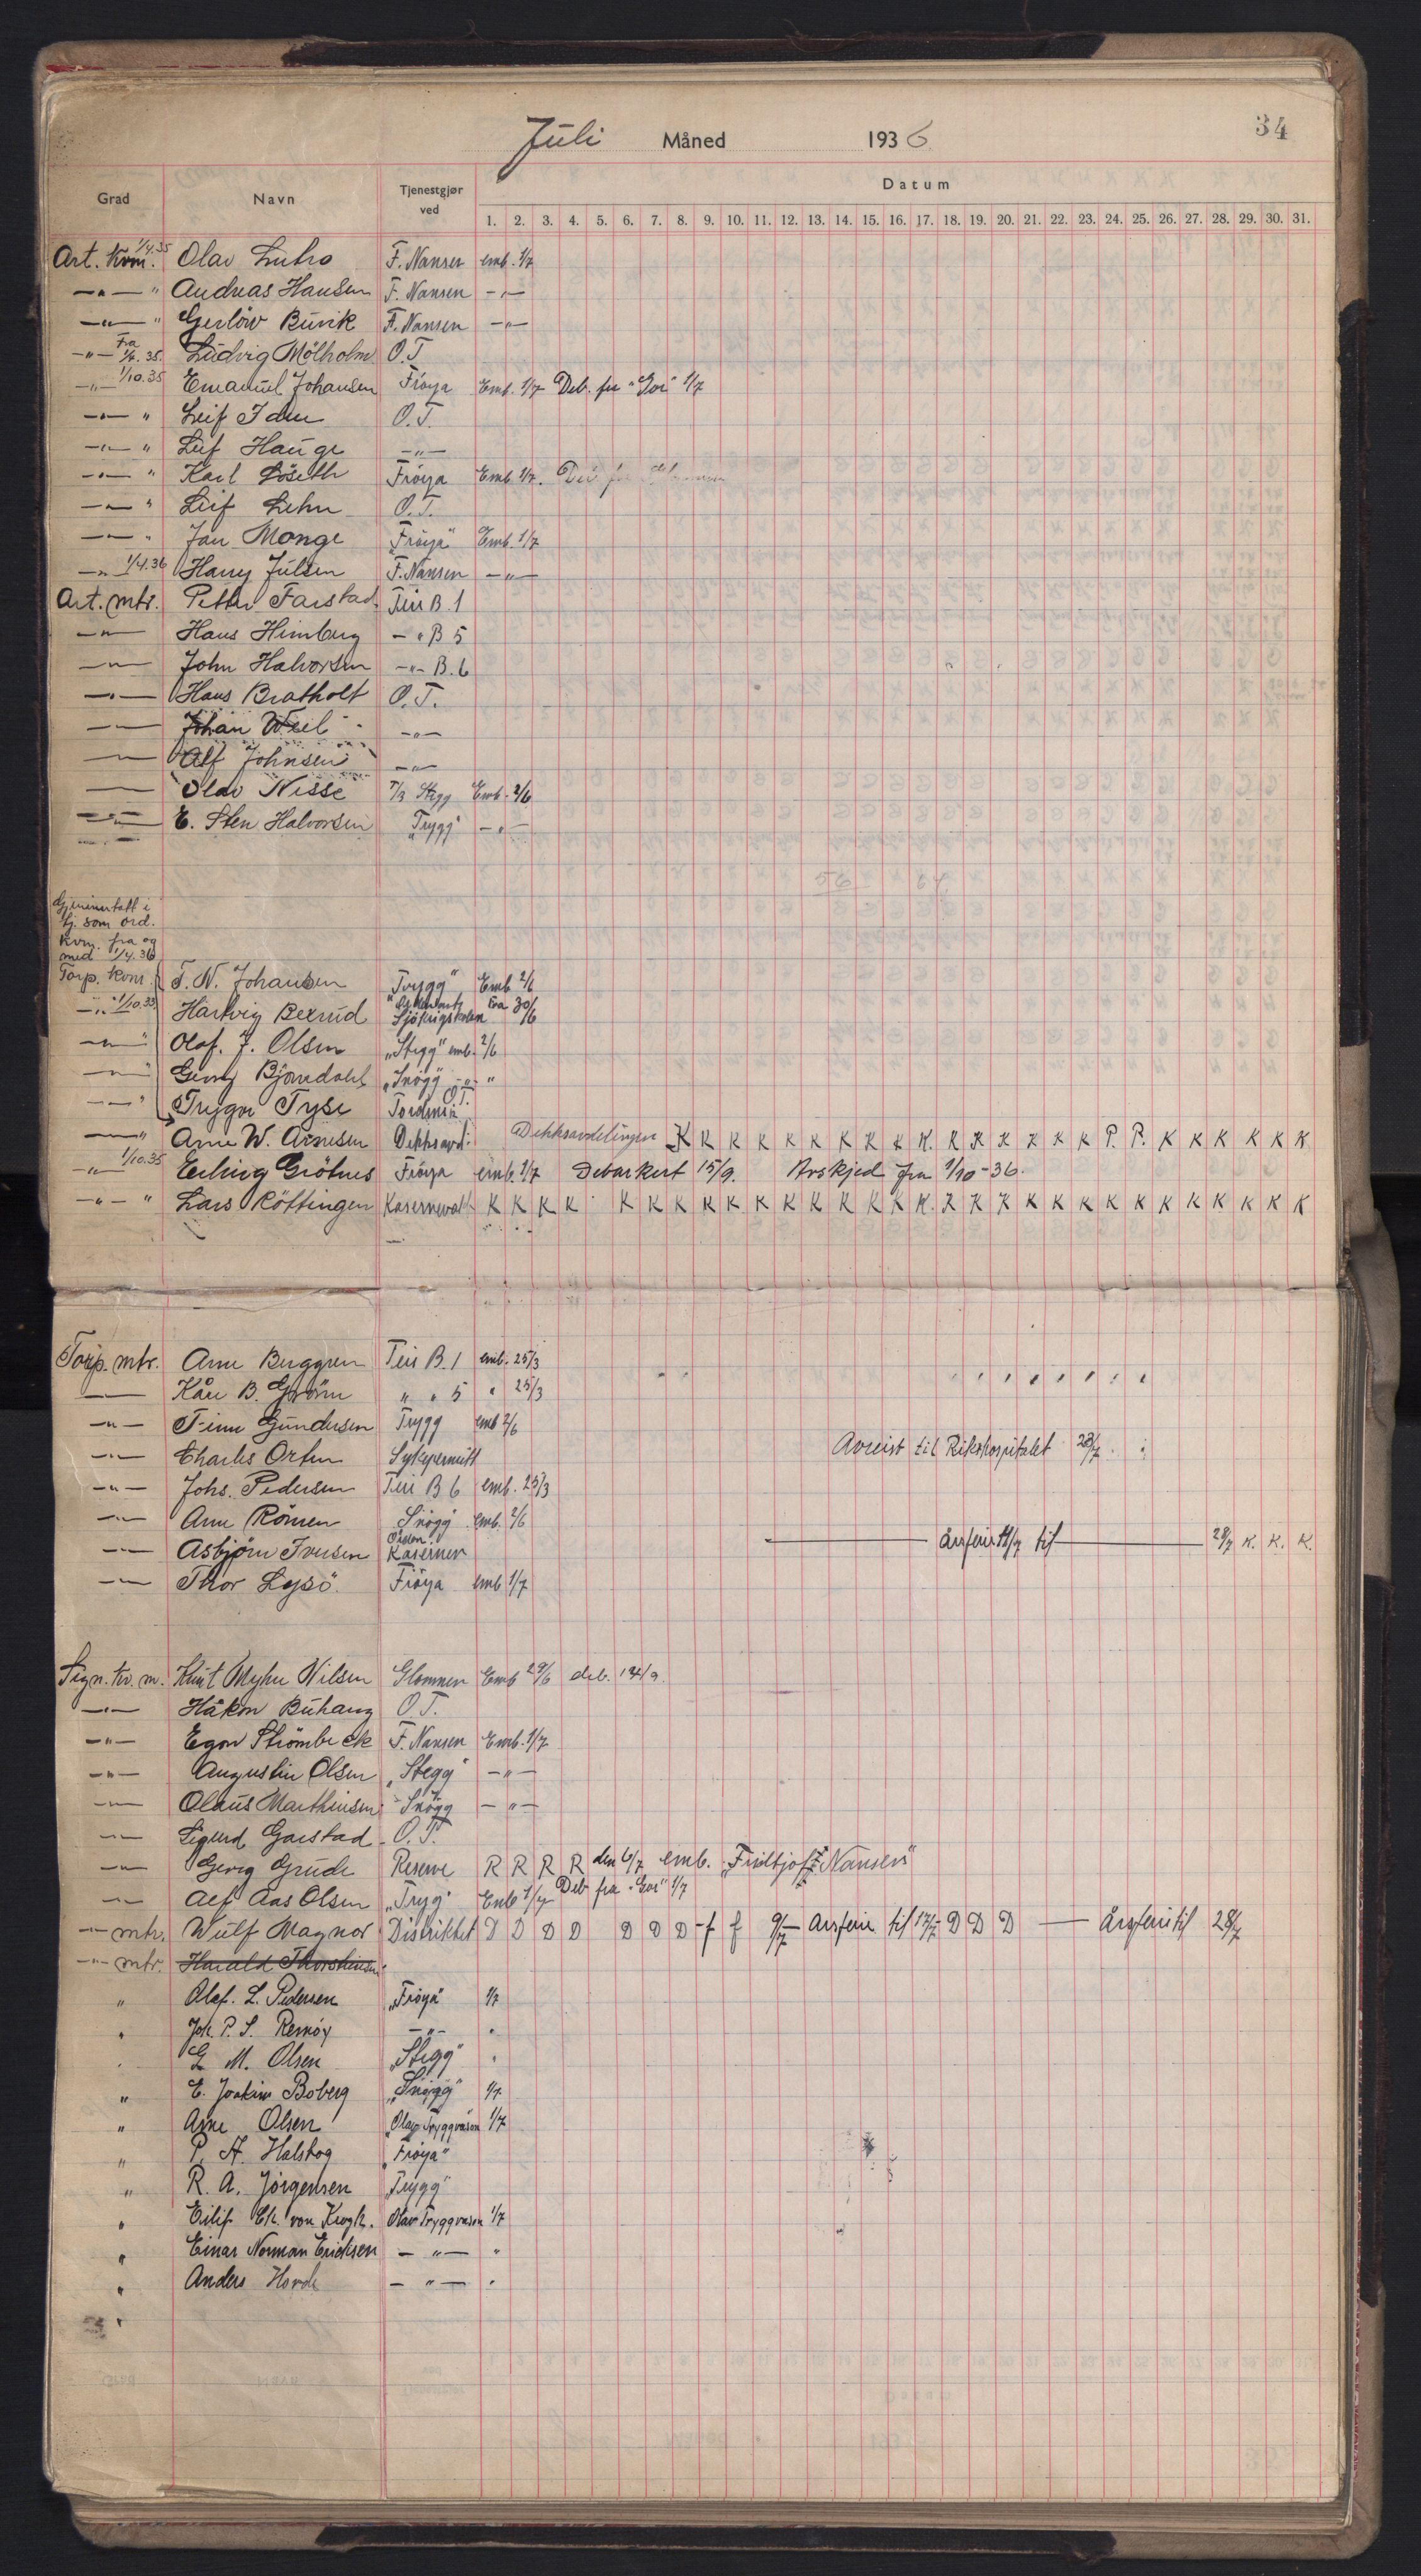 34
Juli Måned 1936
Grad Navn Tjenestgjør ved Datum
1. 2. 3. 4. 5. 6. 7. 8. 9. 10. 11. 12. 13. 14. 15. 16. 17. 18. 19. 20. 21. 22. 23. 24. 25. 26. 27. 28. 29. 30. 31.
Art. kvm. 1/4.35 Olav Lutro F. Nansen emb. 1/7
—"— " Andreas Hansen F. Nansen —"—
—"— " Gerløw Buvik F. Nansen —"—
—"— Fra 1/4.35. Ludvig Mölholm O.T
—"— 1/10.35 Emanuel Johansen Fröya Emb. 1/7 Deb. fra "Gor" 1/7
—"— " Leif Iden O.T.
—"— " Leif Hauge —"—
—"— " Karl Löseth Fröya Emb. 1/7.
—"— " Leif Lehn O.T.
—"— " Jan Monge "Fröya" Emb. 1/7
—"— 1/4.36 Harry Julsen F. Nansen —"—
Art. mtr. Petter Farstad Teis B. 1
—"— Hans Himberg —" B 5
—"— John Halvorsen —"— B. 6
—"— Hans Bratholt O.T.
—"— Johan Weel —"—
—"— Alf Johnsen —"—
—"— Olav Nisse T/3 Stegg Emb. 2/6
—"— E. Sten Halvorsen "Trygg" —"—
56 64
Gjeninntatt i
tj. som ord.
kvm. fra og
med 1/4.36
Torp. kvm. T. N. Johansen "Trygg" Emb 2/6
—"— 1/10.35 Hartvig Bexrud Sjökrigsskolen Fra 30/6
—"— " Olaf. J. Olsen "Stegg" emb. 2/6
—"— " Georg Bjørndahl "Snögg" —"— "
—"— " Trygve Tyse Tordensk. O.T.
—"— " Arne W. Arnesen Dekksavd. Dekksavdelingen K K K K K K K K K K K K K K K K P. P. K K K K K K
—"— 1/10.35 Erling Grötnes Fröya emb. 1/7 Debarkert 15/9. Avskjed fra 1/10-36.
—"— " Lars Röttingen Kasernevakt K K K K K K K K K K K K K K K K. K K K K K K K K K K K K K K
Torp. mtr. Arne Berggren Teis B. 1 emb. 25/3
—"— Kåre B. Gjröm " " 5 " 25/3
—"— Finn Gundersen Trygg emb 2/6
—"— Charles Orten Sykepermitt Avreist til Rikshospitalet 23/7.
—"— Johs. Pedersen Teis B 6 emb. 25/3
—"— Arne Römen Snögg emb. 2/6
—"— Asbjørn Iversen Kasernen årsferie 11/7 til 28/7 K. K. K.
—"— Thor Lysö. Fröya emb 1/7
Sign. kv. m. Knut Myhre Nilsen Glommen Emb 29/6 deb. 14/9.
—"— Håkon Buhaug O.T.
—"— Egon Strömbeck F. Nansen Emb. 1/7
—"— Augustin Olsen "Stegg" —"—
—"— Olaus Marthinsen Snögg —"—
—"— Sigurd Garstad O.T.
—"— Georg Grude Reserve R R R R den 6/7 emb. "Fridtjof Nansen"
—"— Alf Aas Olsen "Tryg" Emb 1/7 Deb fra "Gor" 1/7
—"— mtr. Wulf Magnor Distriktet D D D D D D D - f f 9/7 — Årsferie til 17/7 - D D D — Årsferie til 28/7
—"— mtr. Harald Thorstensen
" Olaf. L. Pedersen "Fröya" 1/7
" Joh. P. S. Remöy —"— "
" G M. Olsen "Stegg" "
" E. Joakim Boberg "Snøgg" 1/7
" Arne Olsen "Olav Tryggvason 1/7
" P. A. Halskog "Fröya"
" R. A. Jörgensen "Trygg"
" Eilif Ch. von Krogh. Olav Tryggvason 1/7
" Einar Norman Ericksen —"— "
" Anders Horde —"— "
"